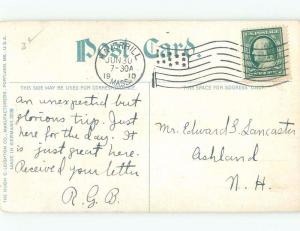 Post Card.
HAVERHILL
JUN 30
7-30A
19 10
MASS.
THIS SIDE MAY BE USED FOR CORRESPONDENCE
THIS SPACE FOR ADDRESS ONLY.
THE HUGH C. LEIGHTON CO., MANUFACTURERS, PORTLAND, ME. U.S.A.
MADE IN GERMANY
an unexpected but
glorious trip. Just
here for the day. It
is just great here.
Received your letter
R. G. B.
Mr. Edward S. Lancaster
Ashland
N. H.